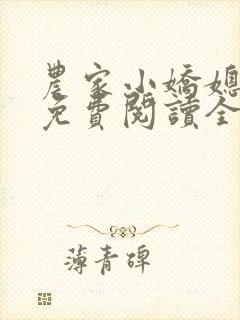 農家小嬌媳
免費閱讀全
薄青碑